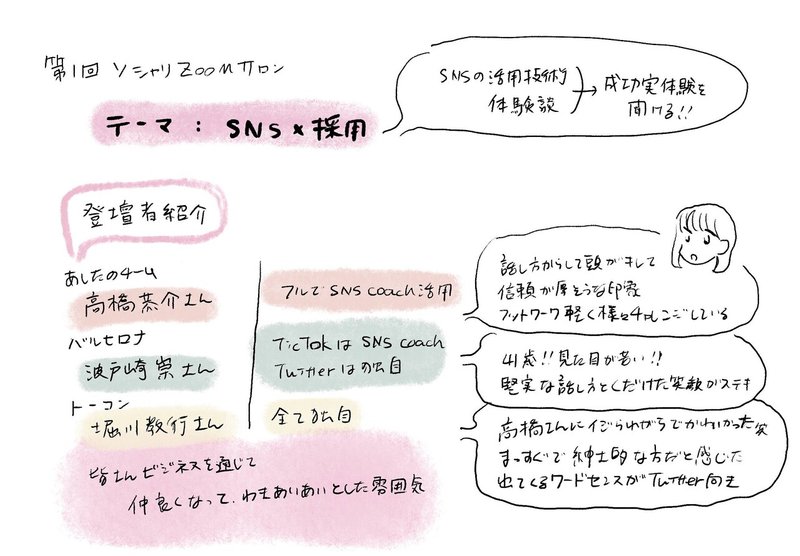 第1回 ソシャリZOOMサロン
テーマ : SNS×採用
SNSの活用技術
体験談
→ 成功実体験を
聞ける!!
登壇者紹介
あしたのチーム
高橋恭介さん
フルでSNS coach活用
バルセロナ
波戸崎崇さん
TicTokはSNS coach
Twitterは独自
トーコン
堀川教行さん
全て独自
皆さんビジネスを通じて
仲良くなって、わきあいあいとした雰囲気
話し方からして頭がキレて
信頼が厚そうな印象
フットワーク軽く様々チャレンジしている
41歳!!見た目が若い!!
堅実な話し方とくだけた笑顔がステキ
高橋さんにイジられがちでかわいかった笑
まっすぐで紳士的な方だと感じた
出てくるワードセンスがTwitter向き